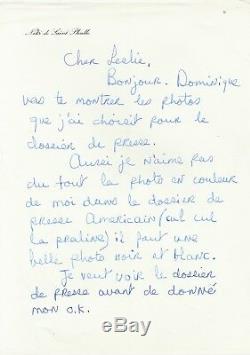 Niki de Saint Phalle
Cher Leslie,
Bonjour. Dominique
vas te montrer les photos
que j'ai choisit pour le
dossier de presse.
Aussi je n'aime pas
du tout la photo en couleur
de moi dans le dossier de
presse Americain (cul cul
la praline) il faut une
belle photo noir et blanc.
Je veut voir le dossier
de presse avant de donné
mon O.K.
ebay
watermark.withLogo